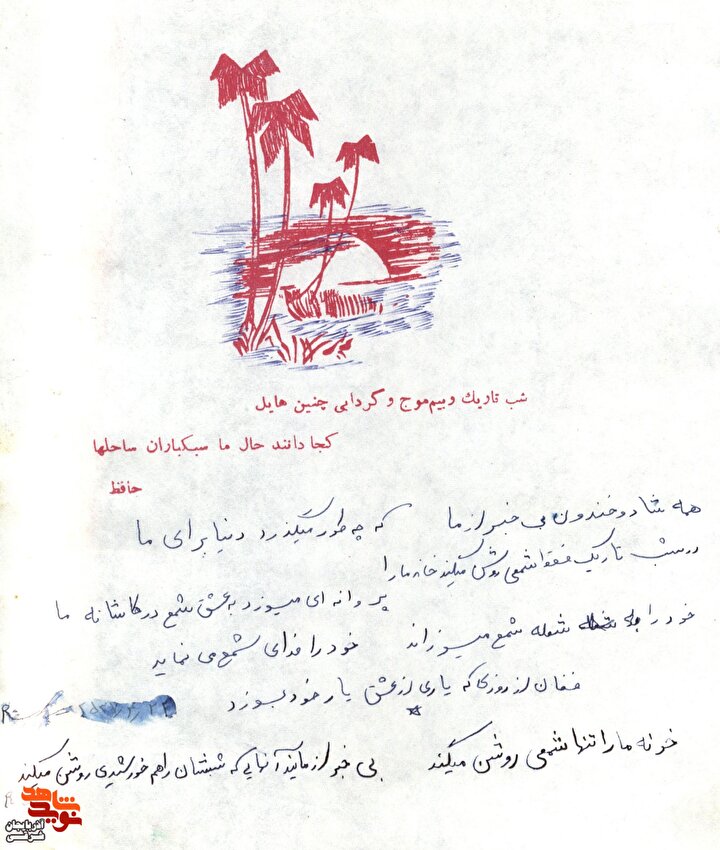 شب تاریک و بیم موج و گردابی چنین هایل
کجا دانند حال ما سبکباران ساحلها
حافظ
همه شاد و خندون بی خبر از ما که چه طور میگذرد دنیا برای ما
در شب تاریک فقط شمعی روشن میکند خانه ما را
پروانه ای میسوزد به عشق شمع در کاشانه ما
خود را به شعله شمع میسوزاند خود را فدای شمع می نماید
فغان از روزی که یاری از عشق یار خود بسوزد
خونه ما را تنها شمعی روشن میکند بی خبر از مایند آنهایی که ششان را هم خورشیدی روشن میکند
نوید شاهد
آذربایجان غربی